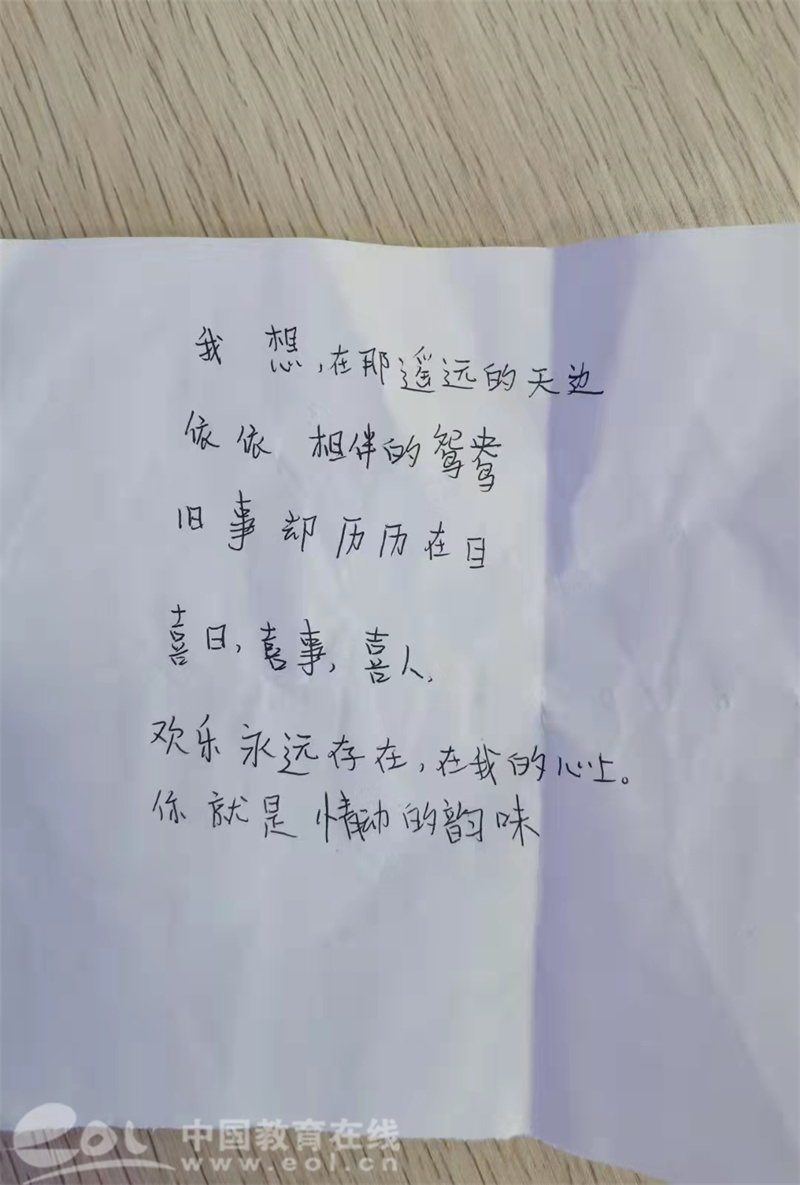 我想,在那遥远的天边
依依相伴的鸳鸯
旧事却历历在目
喜日,喜事,喜人,
欢乐永远存在,在我的心上。
你就是情动的韵味
eol 中国教育在线
www.eol.cn